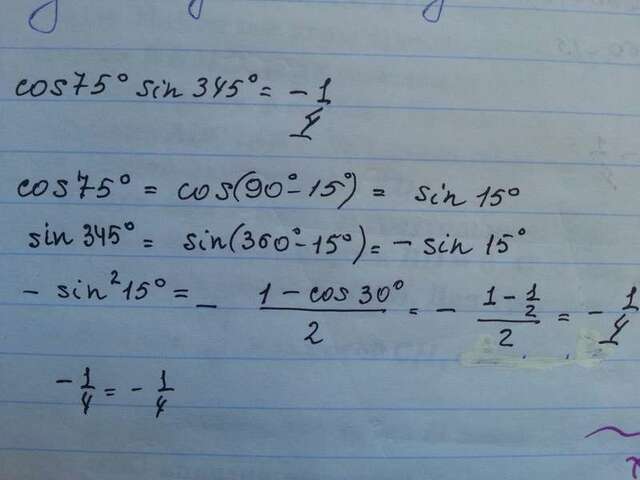 cos75° sin 345° = - 1/4
cos75° = cos(90°-15°) = sin 15°
sin 345° = sin(360°-15°) = - sin 15°
- sin²15° = - (1 - cos 30°)/2 = - (1 - 1/2)/2 = - 1/4
- 1/4 = - 1/4